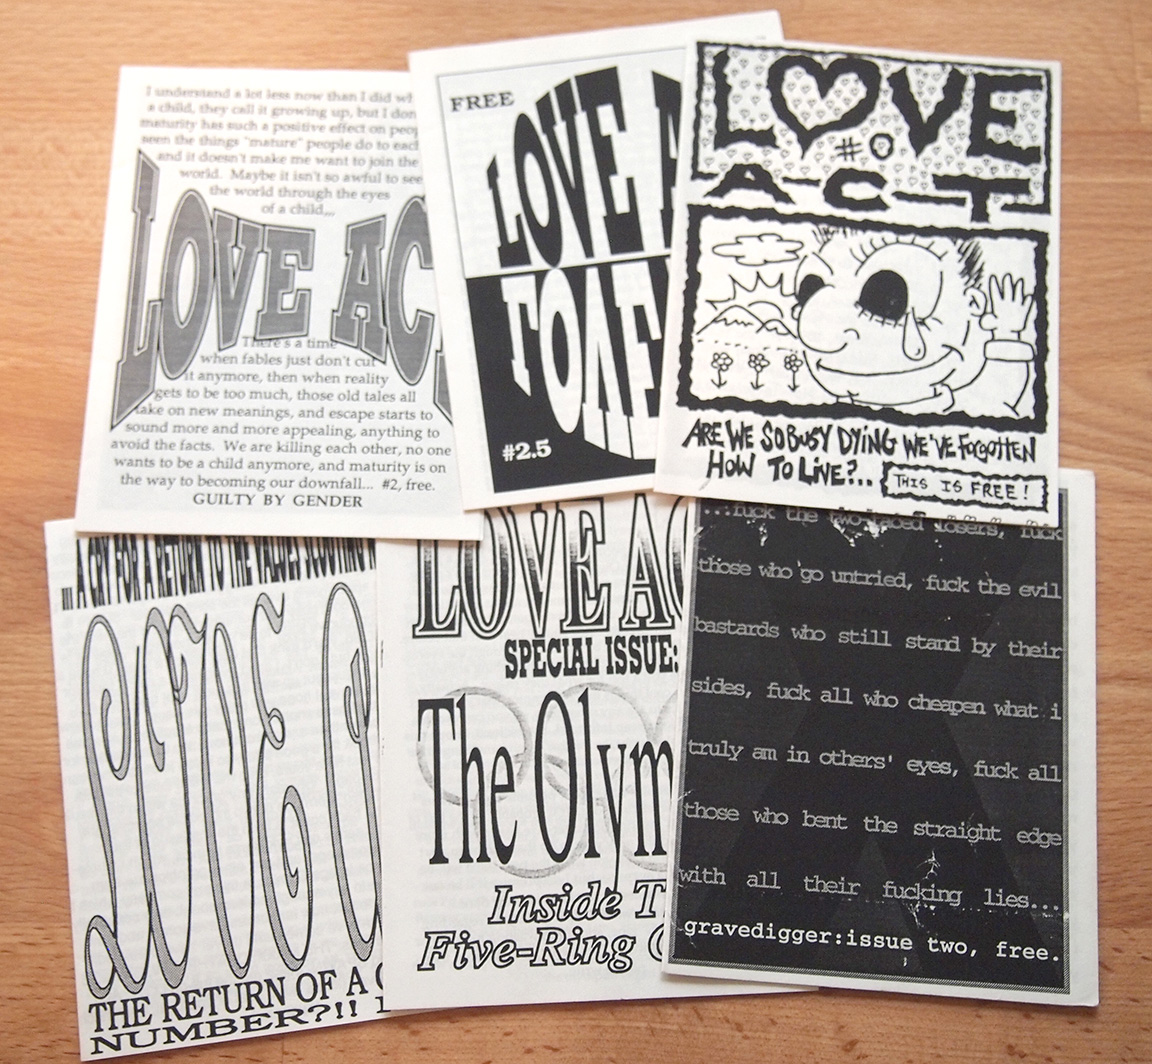 I understand a lot less now than I did wh
a child, they call it growing up, but I don
maturity has such a positive effect on peop
seen the things "mature" people do to each
and it doesn't make me want to join the
world. Maybe it isn't so awful to see
the world through the eyes
of a child,,,
LOVE AC
There's a time
when fables just don't cut
it anymore, then when reality
gets to be too much, those old tales all
take on new meanings, and escape starts to
sound more and more appealing, anything to
avoid the facts. We are killing each other, no one
wants to be a child anymore, and maturity is on
the way to becoming our downfall... #2, free.
GUILTY BY GENDER
FREE
LOVE A
LOVE
#2.5
LOVE
#0
ACT
ARE WE SO BUSY DYING WE'VE FORGOTTEN
HOW TO LIVE?...
THIS IS FREE!
... A CRY FOR A RETURN TO THE VALUES SCOUTING
LOVE
THE RETURN OF A
NUMBER?!!
LOVE AC
SPECIAL ISSUE:
The Olym
Inside T
Five-Ring
...fuck the two-faced losers, fuck
those who go untried, fuck the evil
bastards who still stand by their
sides, fuck all who cheapen what i
truly am in others' eyes, fuck all
those who bent the straight edge
with all their fucking lies...
gravedigger:issue two, free.